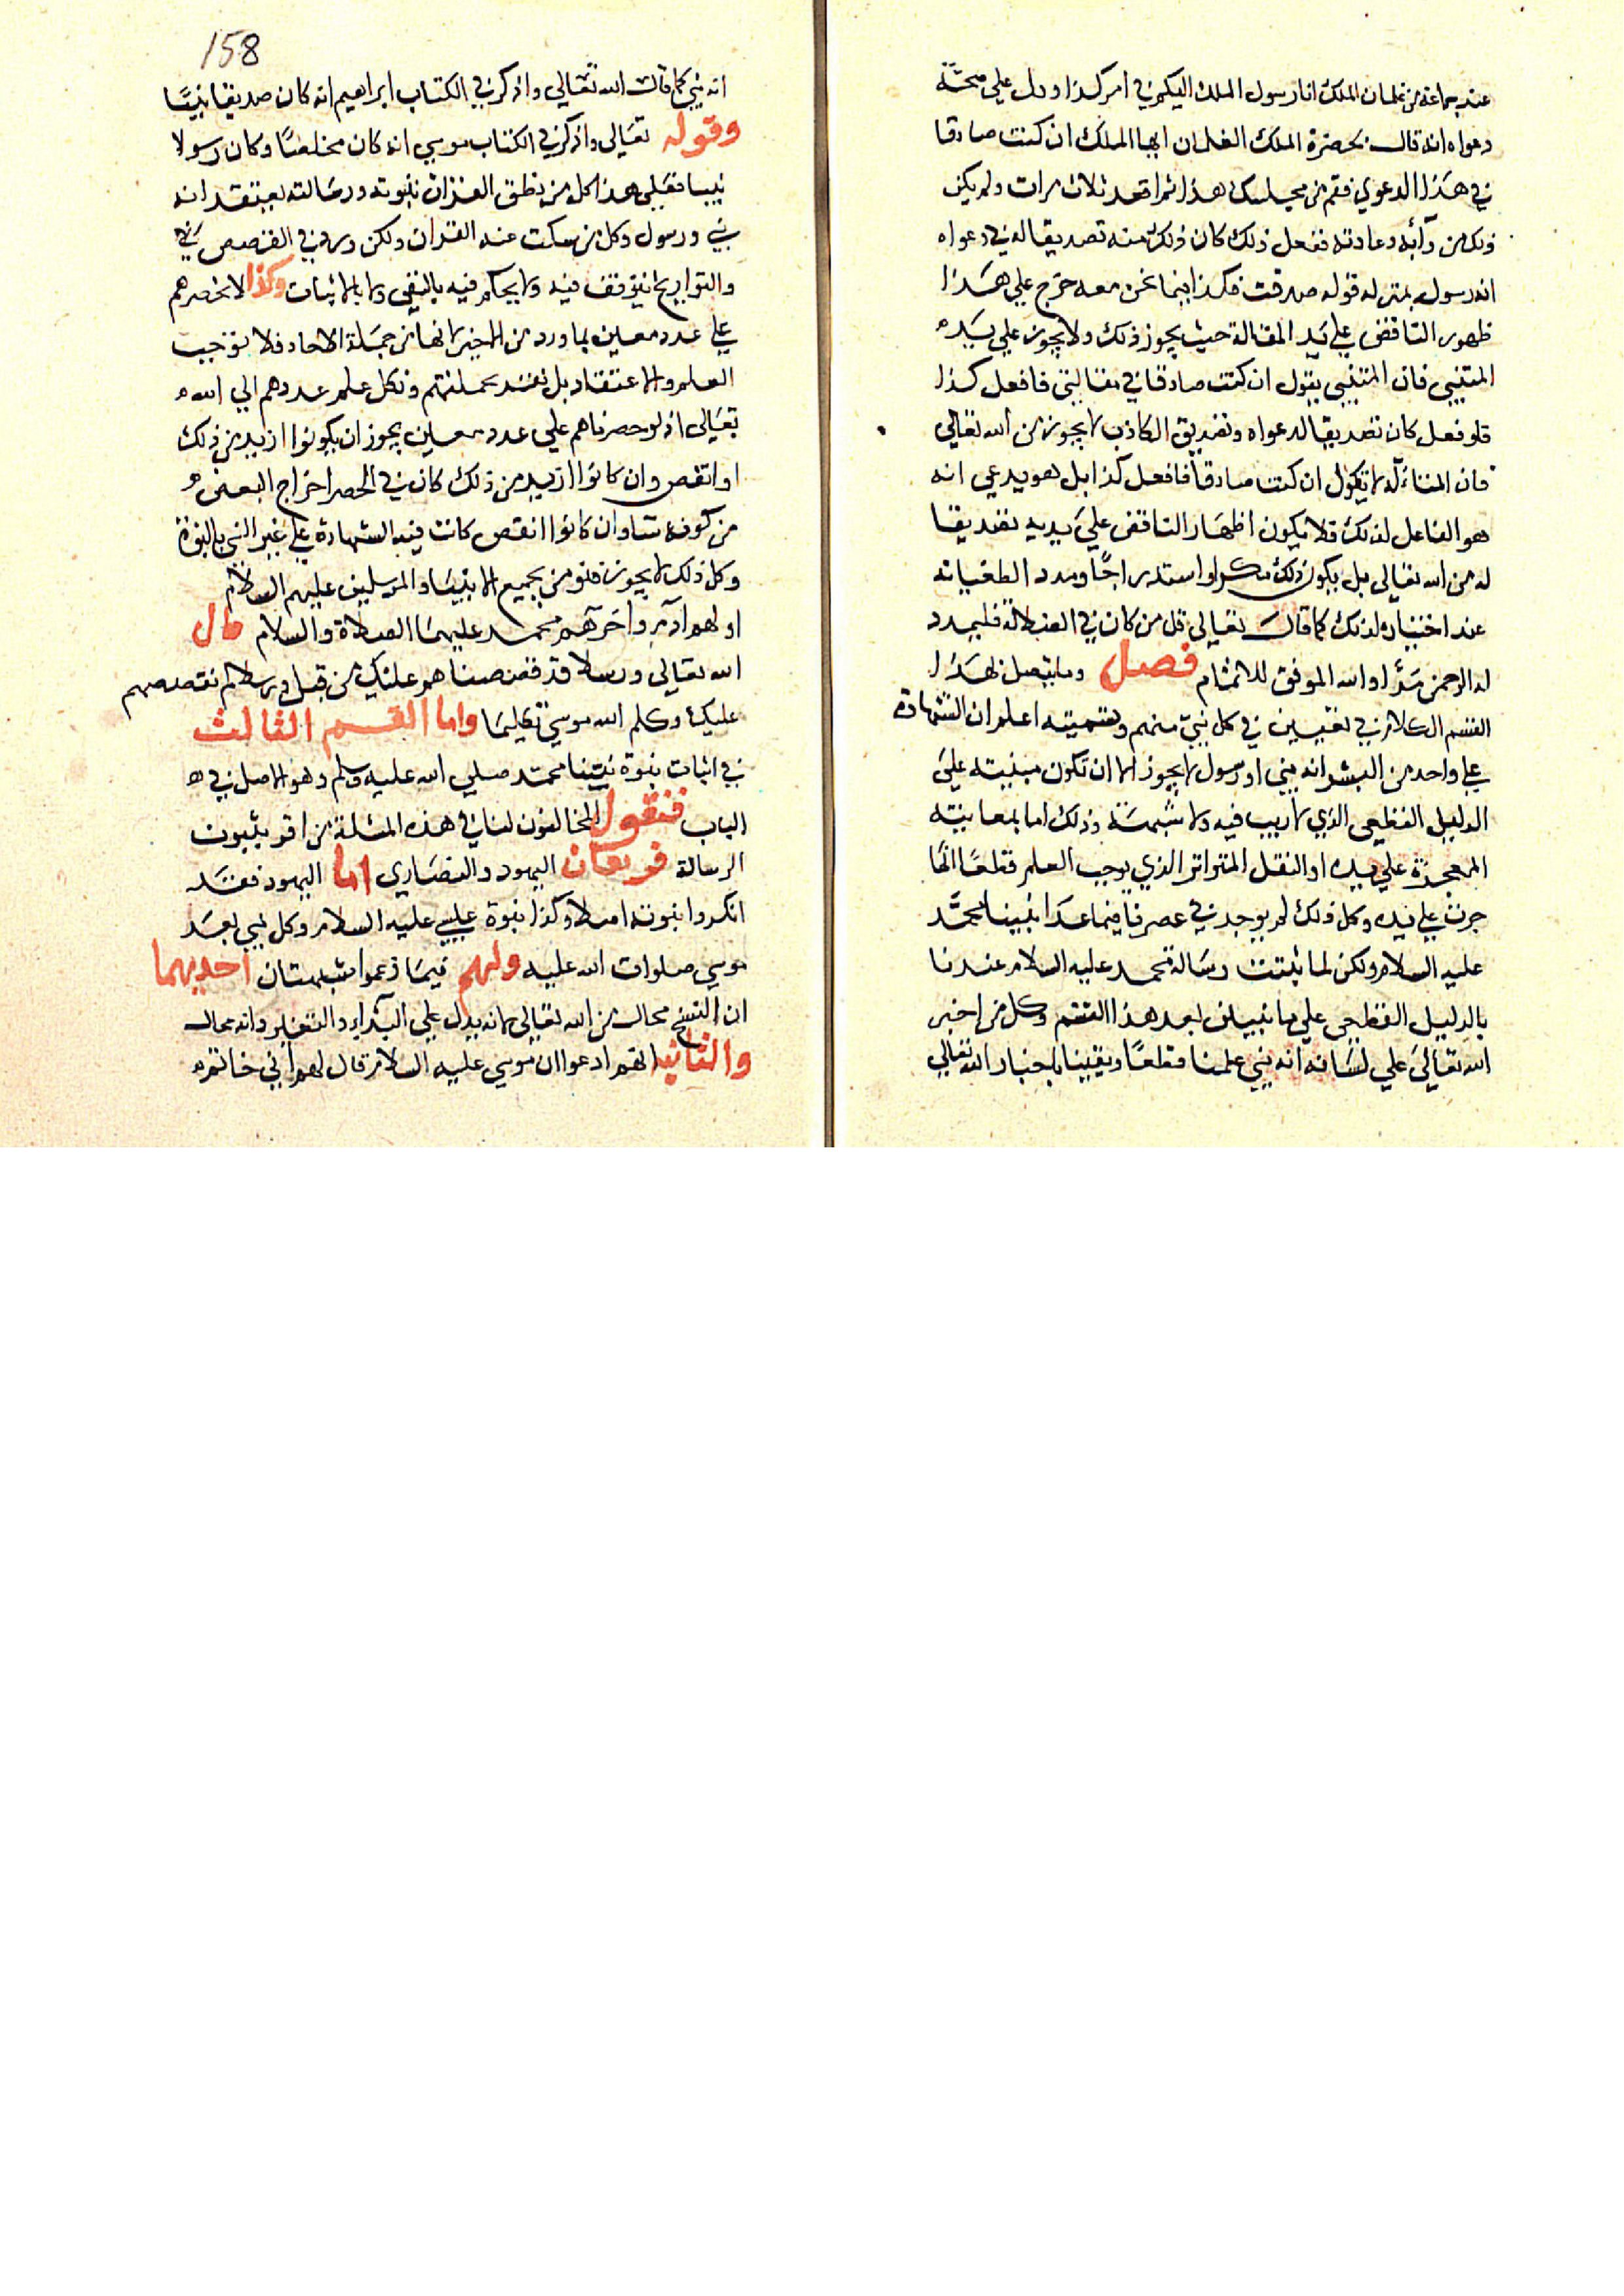 عند جماعة من غلمان الملك انا رسول الملك اليكم في امر كذا ودل على صحة
دعواه انه قال بحضرة الملك الغلمان ايها الملك ان كنت صادقا
في هذا الدعوي فقم من مجلسك هذا ثم اقعد ثلاث مرات ولم يكن
ذلك من دأبه وعادته ففعل ذلك كان ذلك منه تصديقا له في دعواه
انه رسوله بمنزلة قوله صدقت فكذا فيما نحن معه خرج علي هذا
ظهور الناقض علي يد المقالة حيث يجوز ذلك ولا يجوز علي يده
المتنبي فان المتنبي يقول ان كنت صادقا في مقالتي فافعل كذا
فلو فعل كان تصديقا لدعواه وتصديق الكاذب لا يجوز من الله تعالي
فان المتأله لا يقول ان كنت صادقا فافعل كذا بل هو يدعي انه
هو الفاعل لذلك فلا يكون اظهار الناقض علي يديه تصديقا
له من الله تعالى بل يكون ذلك مكرا واستدراجا ومدد الطغيانه
عند اختياره لذلك كما قال تعالى قل من كان في الضلالة فليمدد
له الرحمن مدا والله الموفق للاتمام فصل وما يتصل بهذا
القسم الكلام في تعيين في كل نبي منهم وتسميته اعلم ان الشهادة
علي واحد من البشر انه نبي او رسول لا يجوز الا ان تكون مبنيته علي
الدليل القطعي الذي لا ريب فيه ولا شبهة وذلك اما بمعاينة
المعجزة علي يده او النقل المتواتر الذي يوجب العلم قطعا انها
جرت علي يده وكل ذلك لم يوجد في عصرنا فيما عدا نبينا محمد
عليه السلام ولكن لما ثبتت رسالة محمد عليه السلام عندنا
بالدليل القطعي علي ما نبين بعد هذا القسم وكل من اخبر
الله تعالي علي لسانه انه نبي علمنا قطعا ويقينا باخبار الله تعالي
158
انه نبي كما قال الله تعالي واذكر في الكتاب ابراهيم انه كان صديقا نبيا
وقوله تعالي واذكر في الكتاب موسي انه كان مخلصا وكان رسولا
نبيا فعلي هذا كل من نطق القران بنبوته ورسالته يعتقد انه
نبي ورسول وكل من سكت عنه القران ولكن ورد في القصص
والتواريخ نتوقف فيه ولا يحكم فيه بالنفي ولا بالاثبات وكذا لا نحصرهم
علي عدد معين بما ورد من الخبر لانها من جملة الاحاد فلا توجب
العلم والاعتقاد بل نعتقد بجملتهم ونكل علم عددهم الي الله
تعالى اذ لو حصرناهم علي عدد معين يجوز ان يكونوا ازيد من ذلك
او انقص وان كانوا ازيد من ذلك كان في الحصر اخراج البعض
من كونه نبيا وان كانوا انقص كانت فيه الشهادة علي غير النبي بالنبوة
وكل ذلك لا يجوز فنؤمن بجميع الانبيا والمرسلين عليهم السلام
اولهم آدم وآخرهم محمد عليهما الصلاة والسلام قال
الله تعالي ورسلا قد قصصناهم عليك من قبل ورسلا لم نقصصهم
عليك وكلم الله موسي تكليما واما القسم الثالث
في اثبات نبوة نبينا محمد صلي الله عليه وسلم وهو الاصل في
الباب فنقول المخالفون لنا في هذه المسئلة من اقو يثبون
الرسالة فريقان اليهود والنصاري اما اليهود فقد
انكروا نبوته اصلا وكذا نبوة عيسي عليه السلام وكل نبي بعد
موسي صلوات الله عليه ولهم فيما زعموا شبهتان احديهما
ان النسخ محال من الله تعالي لانه يدل علي البداء والتغير وانه محال
والثانية انهم ادعوا ان موسي عليه السلام قال لهم اني خاتم